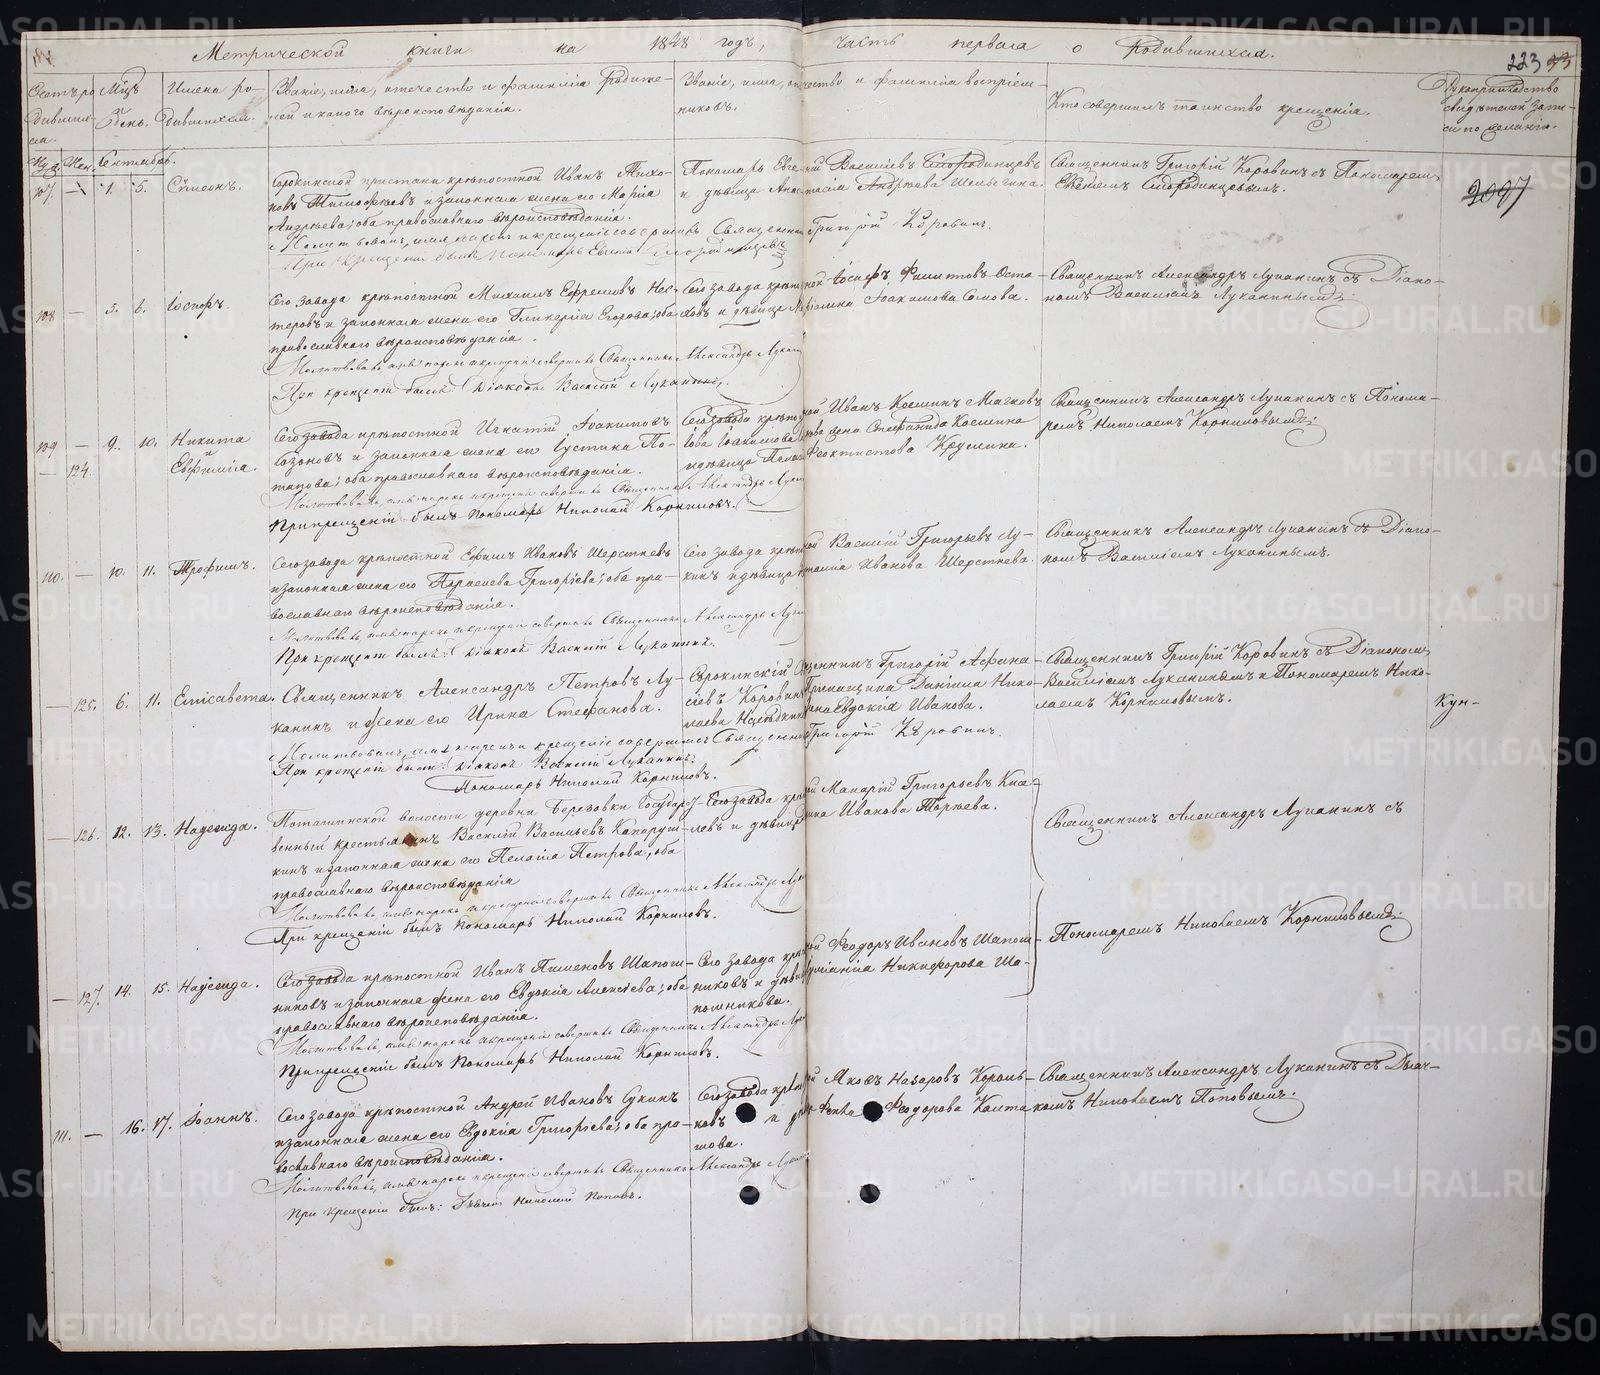 Метрической книги на 1848 годъ, часть первая о Родившихся.
223
Счетъ ро-
дивших-
ся.
Мцъ
и
день.
Имена ро-
дившихся.
Званіе, имя, отечество и фамилія Родите-
лей и какого вѣроисповѣданія.
Званіе, имя, отечество и фамилія воспріем-
никовъ.
Кто совершилъ таинство крещенія.
Рукоприкладство
свидѣтелей запи-
си по желанію.
Му. Жен. Сентябрь.
107. — 1. 5. Сѵмеонъ.
Сорокинской пристани крѣпостной Иванъ Тихо-
новъ Тимофѣевъ и законная жена его Марія
Андреева; оба православнаго вѣроисповѣданія.
Пономарь Евгеній Василіевъ Смородинцевъ
и дѣвица Анастасія Андреева
Священникъ Григорій Коровинъ съ Пономаремъ
Евгеніемъ Смородинцевымъ.
2097
Молитвовалъ, имя нарекъ и крещеніе совершилъ Священникъ Григорій Коровинъ.
При крещеніи былъ Пономарь Евгеній Смородинцевъ
108 — 5. 6. Іосифъ.
Сего завода крѣпостной Михаилъ Ефремовъ Нес-
теровъ и законная жена его Гликерія Егорова; оба
православнаго вѣроисповѣданія.
Сего завода крѣпостной Іосифъ Филиповъ Оста-
ховъ и дѣвица Іоакимова Сомова.
Священникъ Александръ Луканинъ съ Діако-
номъ Василіемъ Луканинымъ;
Молитвовалъ, имя нарекъ и крещеніе совершилъ Священникъ Александръ Лукан
При крещеніи былъ Діаконъ Василій Луканинъ.
109 — 9. 10. Никита
и
— 124. Евфимія.
Сего завода крѣпостной Игнатій Іоакимовъ
Сазоновъ и законная жена его Іустина По-
тапова; оба православнаго вѣроисповѣданія.
Сего завода крѣпостной Иванъ Косминъ Мягковъ
жена Стефанида Космина
и дѣвица Пелагія Феоктистова Крушина.
Священникъ Александръ Луканинъ съ Понома-
ремъ Николаемъ Корниловымъ;
Молитвовалъ, имя нарекъ и крещеніе совершилъ Священникъ Александръ Лукан
При крещеніи былъ Пономарь Николай Корниловъ.
110. — 10. 11. Трофимъ.
Сего завода крѣпостной Ефимъ Ивановъ Шерстневъ
и законная жена его Параскева Григоріева; оба пра-
вославнаго вѣроисповѣданія.
Сего завода крѣпостной Василій Григорьевъ Лу-
кинъ и дѣвица Иванова Шерстнева.
Священникъ Александръ Луканинъ съ Діако-
номъ Василіемъ Луканинымъ.
Молитвовалъ, имя нарекъ и крещеніе совершилъ Священникъ Александръ Лукан
При крещеніи былъ Діаконъ Василій Луканинъ.
— 125. 6. 11. Елисавета.
Священникъ Александръ Петровъ Лу-
канинъ и жена его Ирина Стефанова.
Священникъ Григорій Афана-
сіевъ Коровинъ Даніила Нико-
лаева Евдокія Иванова.
Священникъ Григорій Коровинъ съ Діакономъ
Василіемъ Луканинымъ и Пономаремъ Нико-
лаемъ Корниловымъ.
Кун-
Молитвовалъ, имя нарекъ и крещеніе совершилъ Священникъ Григорій Коровинъ.
При крещеніи были: Діаконъ Василій Луканинъ.
Пономарь Николай Корниловъ.
— 126. 12. 13. Надежда.
Поташинской волости деревни Березовки Государ-
венный крестьянинъ Василій Васильевъ Капоруш-
кинъ и законная жена его Пелагія Петрова; оба
православнаго вѣроисповѣданія
Сего завода крѣпостной Макарій Григорьевъ Кисе-
левъ и дѣвица Иванова Тоѣева.
Священникъ Александръ Луканинъ съ
Молитвовалъ, имя нарекъ и крещеніе совершилъ Священникъ Александръ Лукан
При крещеніи былъ Пономарь Николай Корниловъ.
Пономаремъ Николаемъ Корниловымъ;
— 127. 14. 15. Надежда.
Сего завода крѣпостной Иванъ Пименовъ Шапош-
никовъ и законная жена его Евдокія Алексіева; оба
православнаго вѣроисповѣданія.
Сего завода крѣпостной Феодоръ Ивановъ Шапош-
никовъ и дѣвица Никифорова Ша-
пошникова.
Молитвовалъ, имя нарекъ и крещеніе совершилъ Священникъ Александръ Лукан
При крещеніи былъ Пономарь Николай Корниловъ.
111. — 16. 17. Іоаннъ.
Сего завода крѣпостной Андрей Ивановъ Сукинъ
и законная жена его Евдокія Григоріева; оба пра-
вославнаго вѣроисповѣданія.
Сего завода крѣпостной Яковъ Назаровъ Король-
ковъ и дѣвица Фекла Феодорова Калта-
шова.
Священникъ Александръ Луканинъ съ Дьяч-
комъ Николаемъ Поповымъ.
Молитвовалъ, имя нарекъ и крещеніе совершилъ Священникъ Александръ Лукан
При крещеніи былъ: Дьячекъ Николай Поповъ.
METRIKI.GASO-URAL.RU